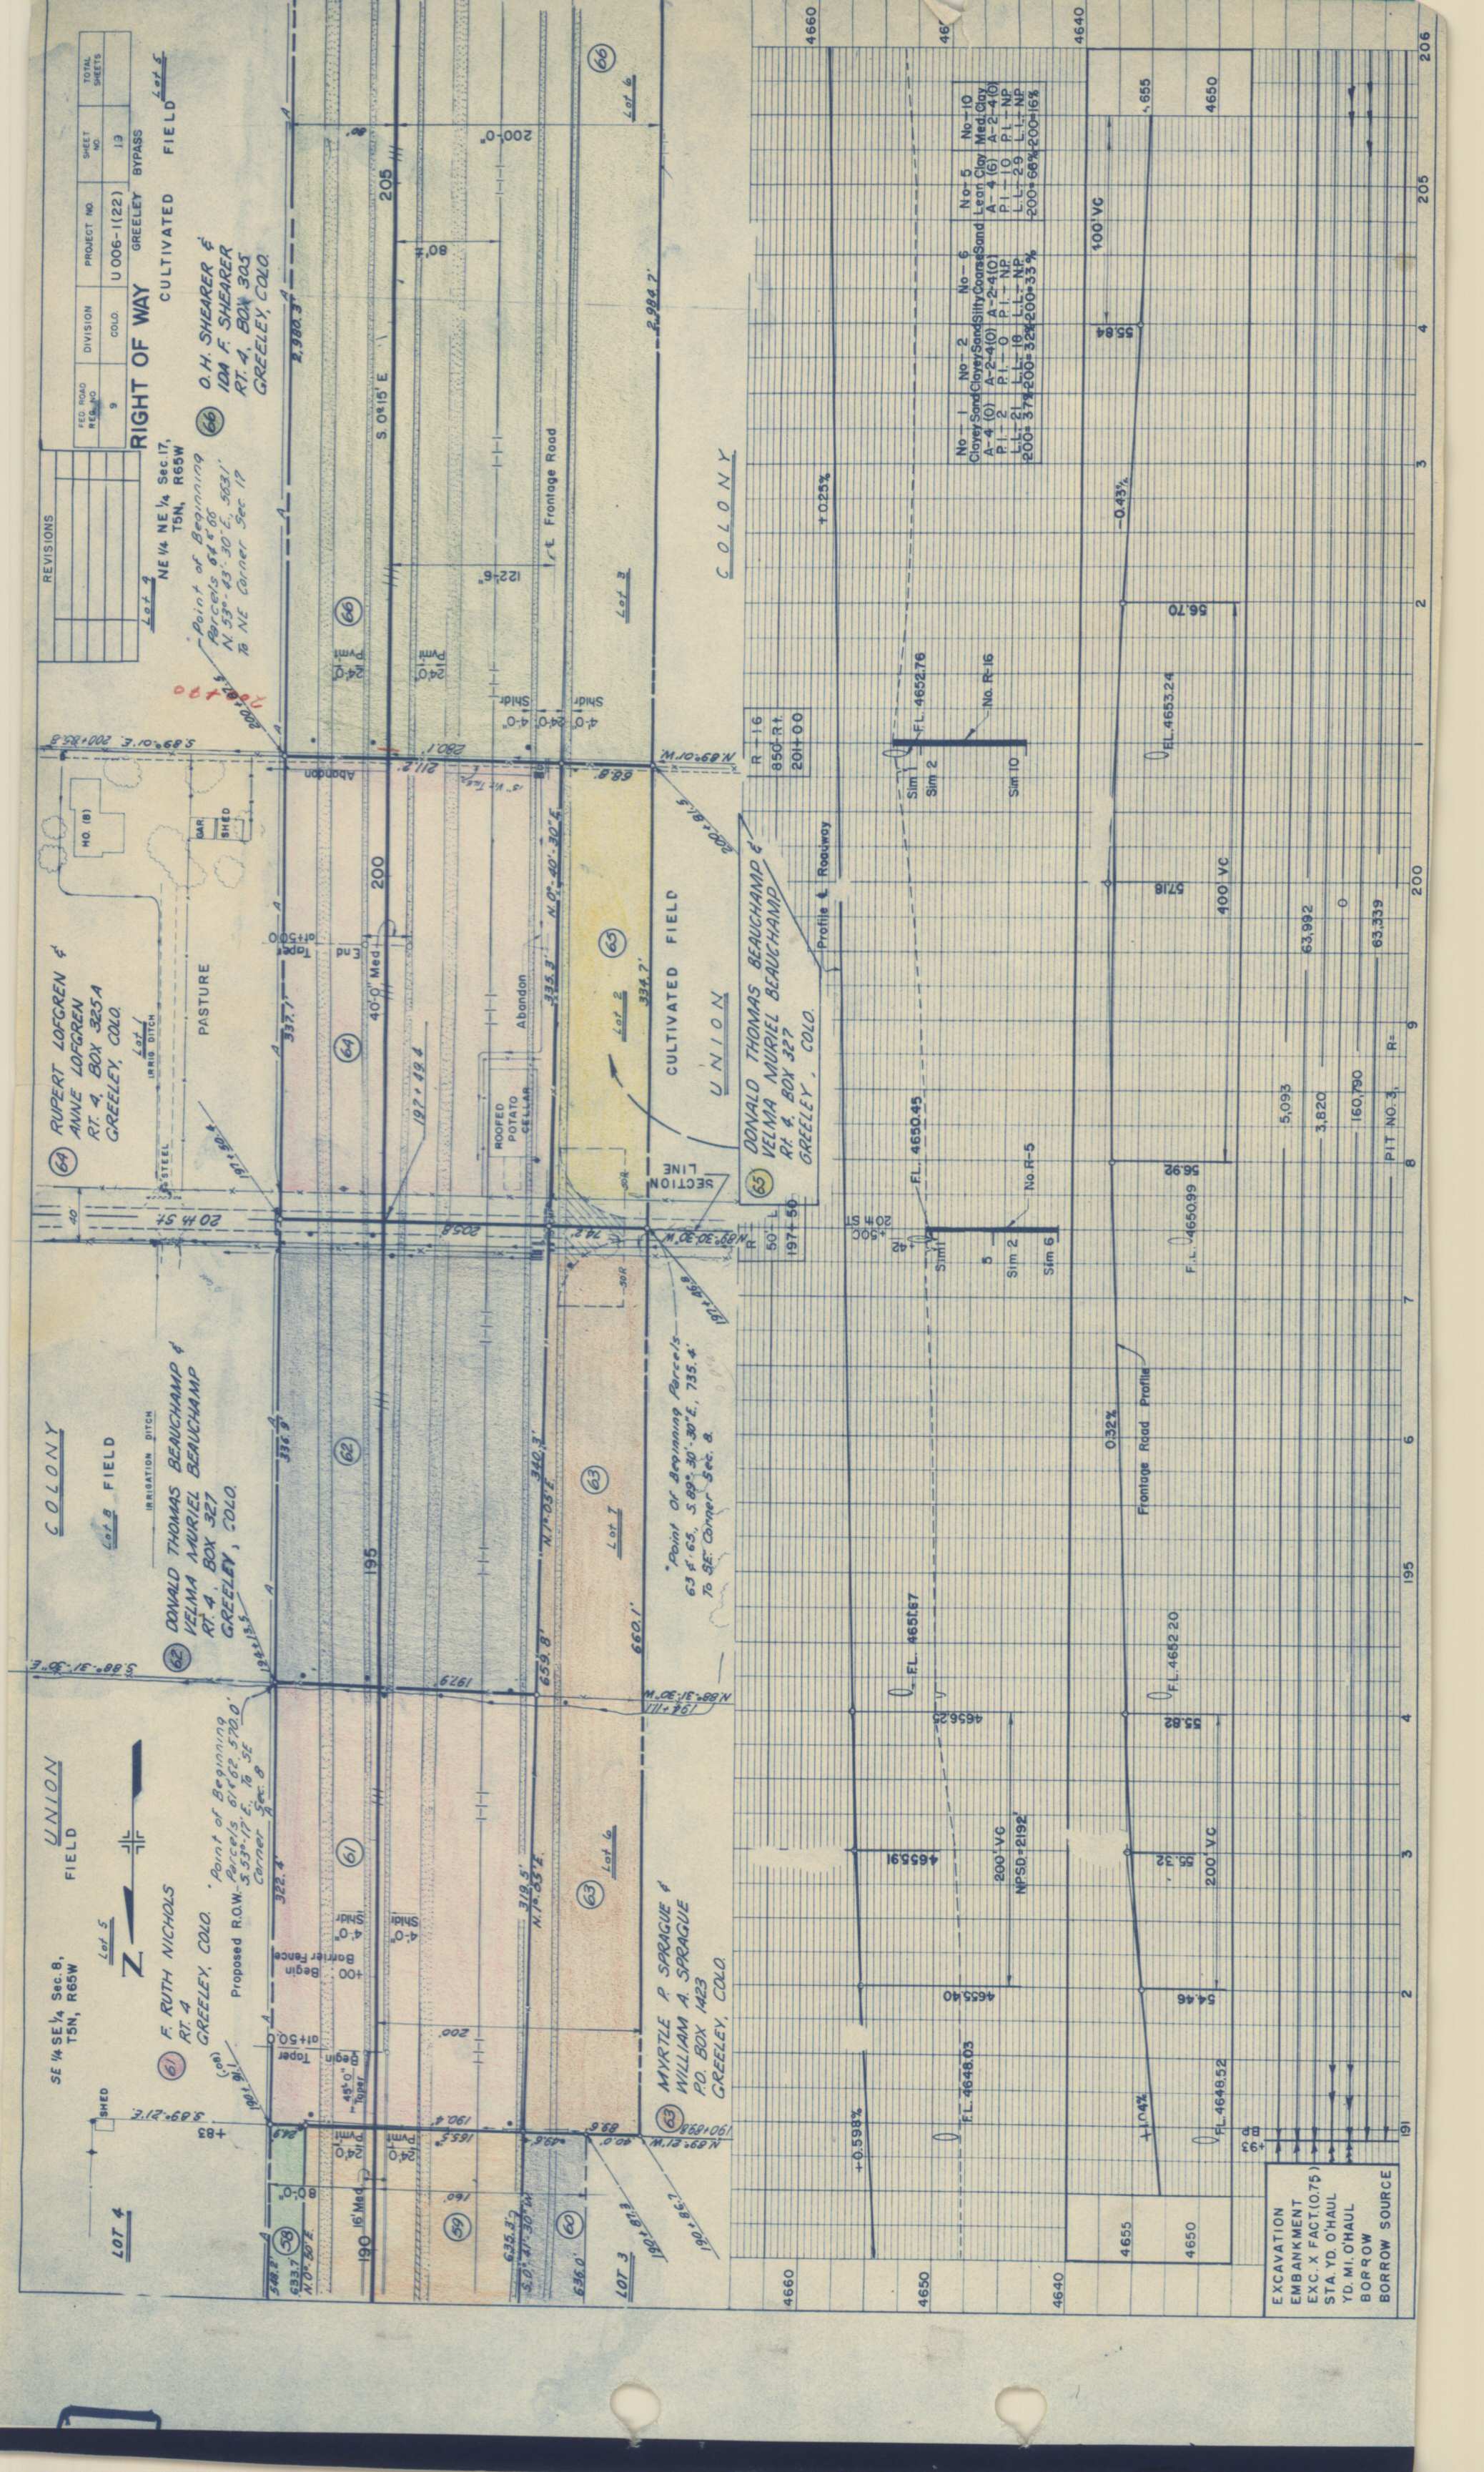 REVISIONS
FED. ROAD REG. NO
DIVISION
PROJECT NO.
SHEET NO.
TOTAL SHEETS
9
COLO.
U 006-1(22)
13
RIGHT OF WAY
GREELEY BYPASS
SE 1/4 SE 1/4 Sec. 8,
T5N, R65W
UNION
FIELD
COLONY
Lot 8 FIELD
IRRIGATION DITCH
NE 1/4 NE 1/4 Sec. 17,
T5N, R65W
Lot 4
CULTIVATED FIELD
Lot 5
LOT 4
SHED
Lot 5
Z
61 F. RUTH NICHOLS
RT. 4
GREELEY, COLO.
Proposed R.O.W.
Point of Beginning
Parcels 61 & 62 570.0'
S. 53°-17' E. To SE
Corner Sec. 8
62 DONALD THOMAS BEAUCHAMP &
VELMA MURIEL BEAUCHAMP
RT. 4, BOX 327
GREELEY, COLO.
64 RUPERT LOFGREN &
ANNE LOFGREN
RT. 4, BOX 325A
GREELEY, COLO.
Lot 1
IRRIG DITCH
PASTURE
STEEL
20 th ST
40
HO. (B)
GAR.
SHED
Point of Beginning
Parcels 64 & 66
N. 53°-43'-30" E., 563.1'
To NE Corner Sec 17
66 O.H. SHEARER &
IDA F. SHEARER
RT. 4, BOX 305
GREELEY, COLO.
S.89°-21'E.
+83
S.88°-31'-30"E.
S.89°-01'E. 200+85.8
322.4'
336.9'
337.7'
2,980.3'
58
59
60
61
62
63
63
64
65
66
66
190
195
200
205
S. 0°15' E
16' Med.
40'-0" Med.
Taper Begin at+50.0
+00 Begin Barrier Fence
4'-0" Shldr
4'-0" Shldr
24'-0" Pvmt
24'-0" Pvmt
End Taper at+50.0
197+49.6
ROOFED
POTATO
CELLAR
Abandon
Abandon
24'-0" Pvmt
24'-0" Pvmt
4'-0" Shldr
24'-0"
4'-0" Shldr
122'-6"
80'
200'-0"
1 rt. Frontage Road
548.2'
633.7'
N.0°-50'E.
635.3'
636.0'
LOT 3
80'-0"
160'
200'
165.5'
190.4'
89.6'
40.0'
197.9'
205.8'
74.2'
211.2'
280.1'
68.8'
319.5'
N.1°-05'E.
659.8'
N.1°-05'E.
340.3'
660.1'
335.3'
N.0°-40'-30"E.
334.7'
2,984.2'
Lot 6
Lot 7
Lot 2
Lot 3
Lot 6
190+87.3
190+86.7
N.89°-21'W.
190+89.8
N.88°-31'-30"W.
194+11.1
N.89°-30'-30"W.
N.89°-01'W.
SECTION
LINE
50R
50R
CULTIVATED FIELD
UNION
COLONY
63 MYRTLE P. SPRAGUE &
WILLIAM A. SPRAGUE
P.O. BOX 1423
GREELEY, COLO.
Point of Beginning Parcels
63 & 65, S.89°-30'-30"E., 735.4'
To SE. Corner Sec. 8.
65 DONALD THOMAS BEAUCHAMP &
VELMA MURIEL BEAUCHAMP
Rt. 4, BOX 327
GREELEY, COLO.
50' L
197+50
R-16
850-Rt.
201+00
Profile ℄ Roadway
4660
4650
4640
4655
4650
4660
4640
4650
+0.598%
4655.40
4655.91
4656.25
200' VC
NPSD=2192'
+0.25%
FL. 4648.03
FL. 4651.67
FL. 4650.45
FL. 4652.76
20th ST
Sim 1
5
Sim 2
Sim 6
No. R-5
Sim 1
Sim 2
Sim 10
No. R-16
No-1
Clayey Sand
A-4 (0)
P.I.-2
L.L.-21
200=37%
No-2
Clayey Sand
A-2-4(0)
P.I.-0
L.L.-18
200=32%
No-6
Silty Coarse Sand
A-2-4(0)
P.I.-NP
L.L.-NP
200=33%
No-5
Lean Clay
A-4 (6)
P.I.-10
L.L.-29
200=66%
No-10
Med. Clay
A-2-4(0)
P.I.-NP
L.L.-NP
200=16%
+1.04%
54.46
55.32
55.82
200' VC
0.32%
Frontage Road Profile
56.92
57.18
400' VC
56.70
-0.43%
55.84
+00' VC
FL.4648.52
FL.4652.20
F.L. 4650.99
FL.4653.24
EXCAVATION
EMBANKMENT
EXC. X FACT.(0.75)
STA. YD. O'HAUL
YD. MI. O'HAUL
BORROW
BORROW SOURCE
5,093
63,992
3,820
0
160,790
63,339
PIT NO. 3, R-
191
2
3
4
195
6
7
8
9
200
1
2
3
4
205
206